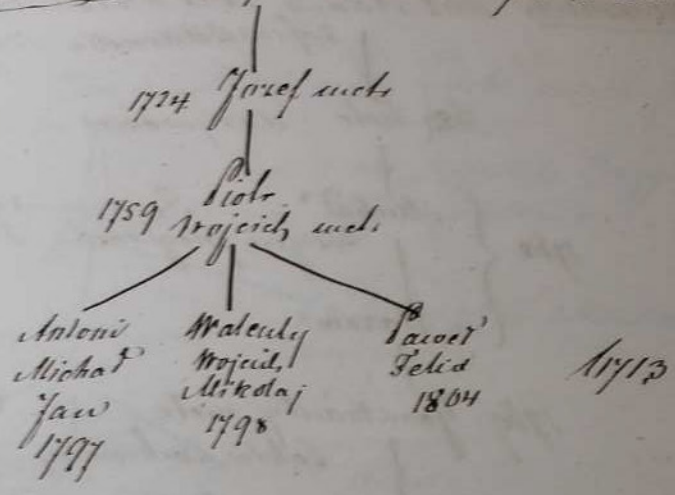 1724 Jozef metr.
Piotr
1759 Wojciech metr.
Antoni
Michał
Jan
1797
Walenty
Wojciech
Mikolaj
1798
Paweł
Felix
1804
1713